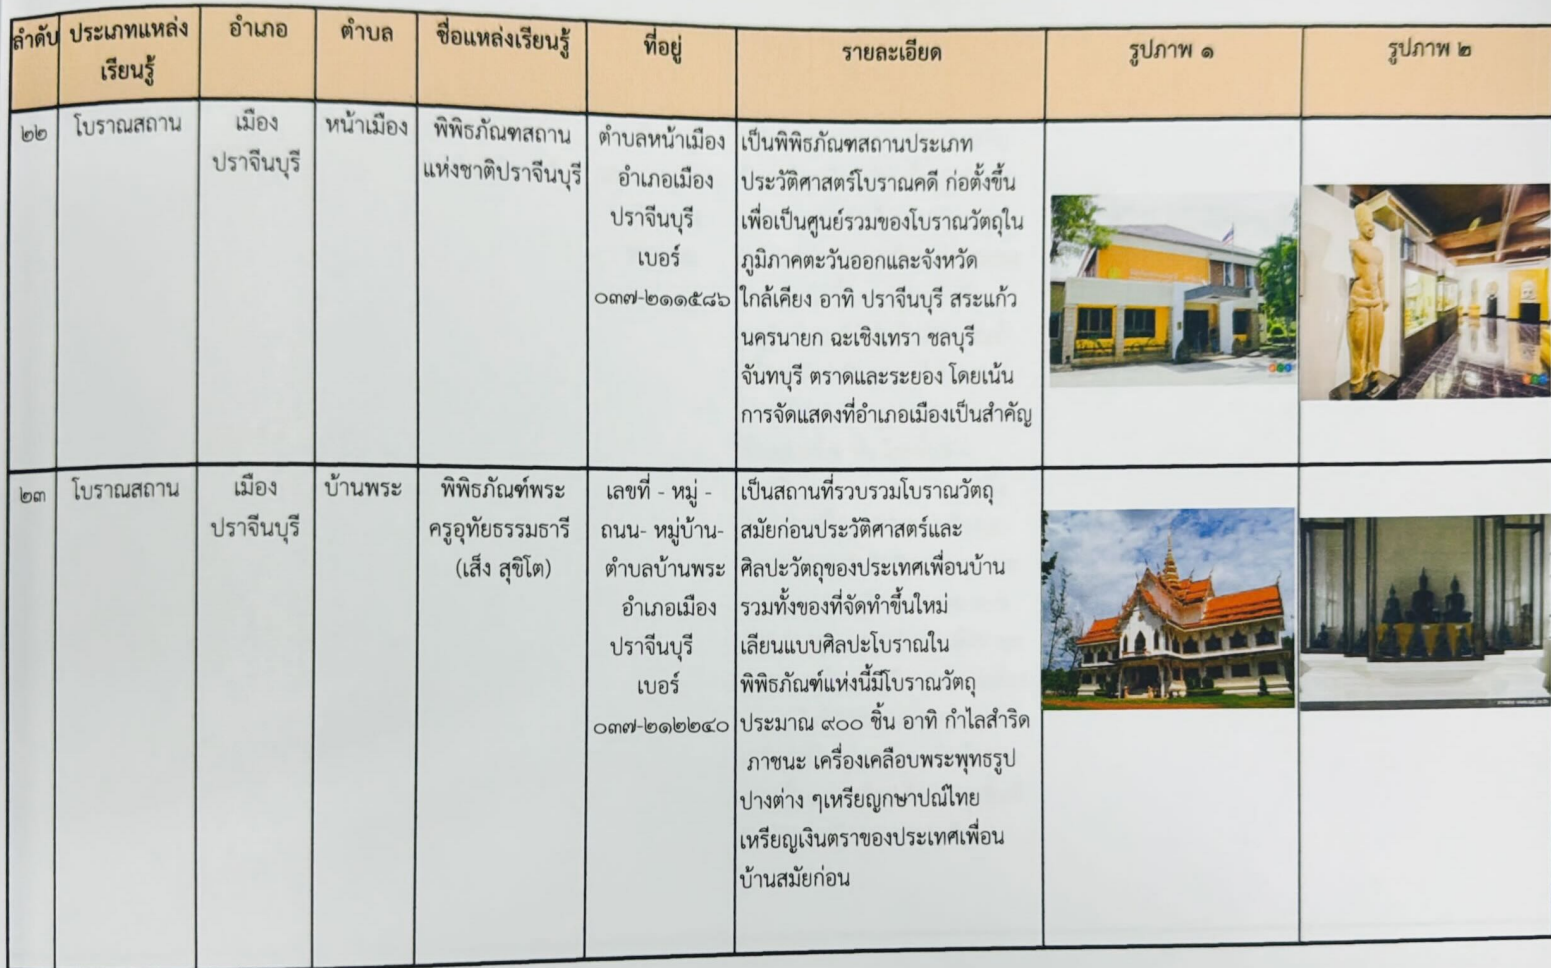 ลำดับ
ประเภทแหล่ง
เรียนรู้
อำเภอ
ตำบล
ชื่อแหล่งเรียนรู้
ที่อยู่
รายละเอียด
รูปภาพ ๑
รูปภาพ ๒
๒๒
โบราณสถาน
เมือง
ปราจีนบุรี
หน้าเมือง
พิพิธภัณฑสถาน
แห่งชาติปราจีนบุรี
ตำบลหน้าเมือง
อำเภอเมือง
ปราจีนบุรี
เบอร์
๐๓๗-๒๑๑๕๘๖
เป็นพิพิธภัณฑสถานประเภท
ประวัติศาสตร์โบราณคดี ก่อตั้งขึ้น
เพื่อเป็นศูนย์รวมของโบราณวัตถุใน
ภูมิภาคตะวันออกและจังหวัด
ใกล้เคียง อาทิ ปราจีนบุรี สระแก้ว
นครนายก ฉะเชิงเทรา ชลบุรี
จันทบุรี ตราดและระยอง โดยเน้น
การจัดแสดงที่อำเภอเมืองเป็นสำคัญ
๒๓
โบราณสถาน
เมือง
ปราจีนบุรี
บ้านพระ
พิพิธภัณฑ์พระ
ครูอุทัยธรรมธารี
(เส็ง สุขิโต)
เลขที่ - หมู่ -
ถนน- หมู่บ้าน-
ตำบลบ้านพระ
อำเภอเมือง
ปราจีนบุรี
เบอร์
๐๓๗-๒๑๒๒๔๐
เป็นสถานที่รวบรวมโบราณวัตถุ
สมัยก่อนประวัติศาสตร์และ
ศิลปะวัตถุของประเทศเพื่อนบ้าน
รวมทั้งของที่จัดทำขึ้นใหม่
เลียนแบบศิลปะโบราณใน
พิพิธภัณฑ์แห่งนี้มีโบราณวัตถุ
ประมาณ ๙๐๐ ชิ้น อาทิ กำไลสำริด
ภาชนะ เครื่องเคลือบพระพุทธรูป
ปางต่าง ๆเหรียญกษาปณ์ไทย
เหรียญเงินตราของประเทศเพื่อน
บ้านสมัยก่อน